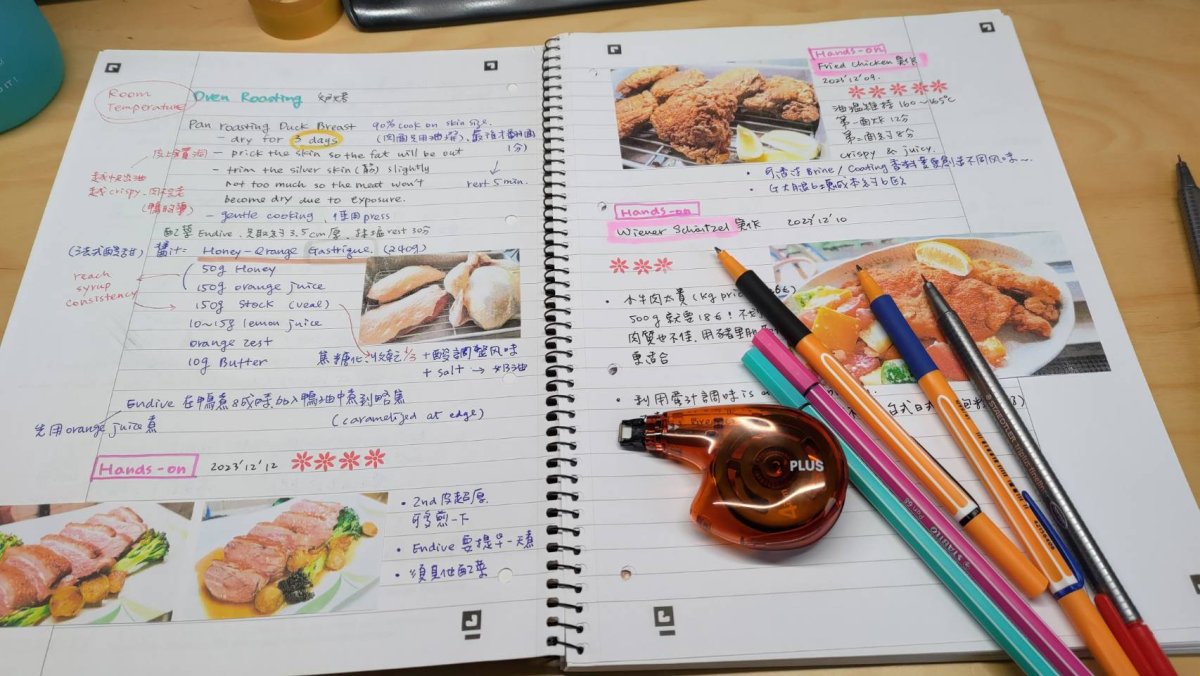 Room
Temperature
Oven Roasting
Pan roasting Duck Breast
90% cook on skin size.
dry for 3 days
- prick the skin so the fat will be out
- trim the silver skin (筋) slightly
not too much so the meat won't
become dry due to exposure.
rest 5 min.
- gentle cooking, 使用press
配菜 Endive
3.5cm厚
rest 30分
醬汁= Honey-Orange Gastrique (240g)
reach
syrup
consistency
50g Honey
150g orange juice
150g Stock (veal)
10~15g lemon juice
orange zest
10g Butter
焦糖化
1/3 +酸調整风味
+ salt → 奶油
Endive 在鴨煮8成時加入鴨油中煮到略焦
先用orange juice煮
(caramelized at edge)
Hands-on
2023'12'12
• 2nd 皮超厚
可多煎一下
• Endive 要提早一天煮
• 須其他配菜
Hands-on
Fried Chicken 製作
2023'12'09.
油溫維持 160~165℃
第一面炸 12分
第二面 8分
crispy & juicy.
Brine / Coating 香料
Hands-on
Wiener Schnitzel 製作 2023'12'10
• 小牛肉太貴 (kg
500g 就要 18€!
肉質也不佳, 用豬里肌
更适合
• 利用醬汁調味 is
台式日式
PLUS
STABILO